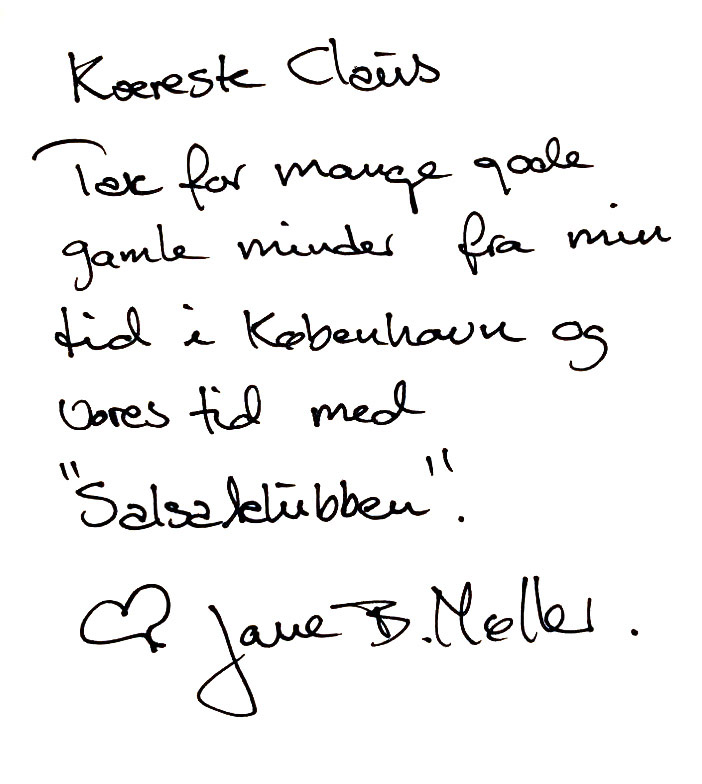 Kæreste Claus
Tak for mange gode
gamle minder fra min
tid i København og
vores tid med
"Salsaklubben".
♡ Jane B. Møller.